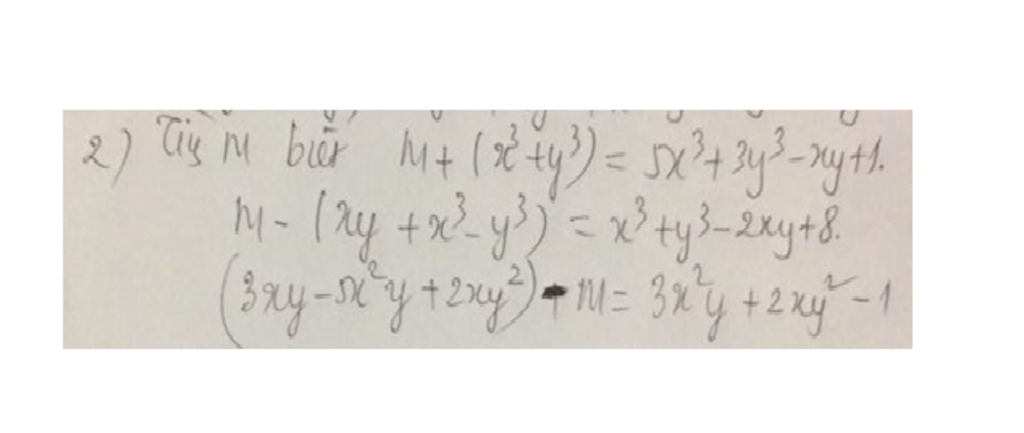 2) Tìm M biết M + (x³ + y³) = 5x³ + 3y³ - xy + 1.
M - (xy + x³ - y³) = x³ + y³ - 2xy + 8.
(3xy - 5x²y + 2xy²) - M = 3x²y + 2xy² - 1